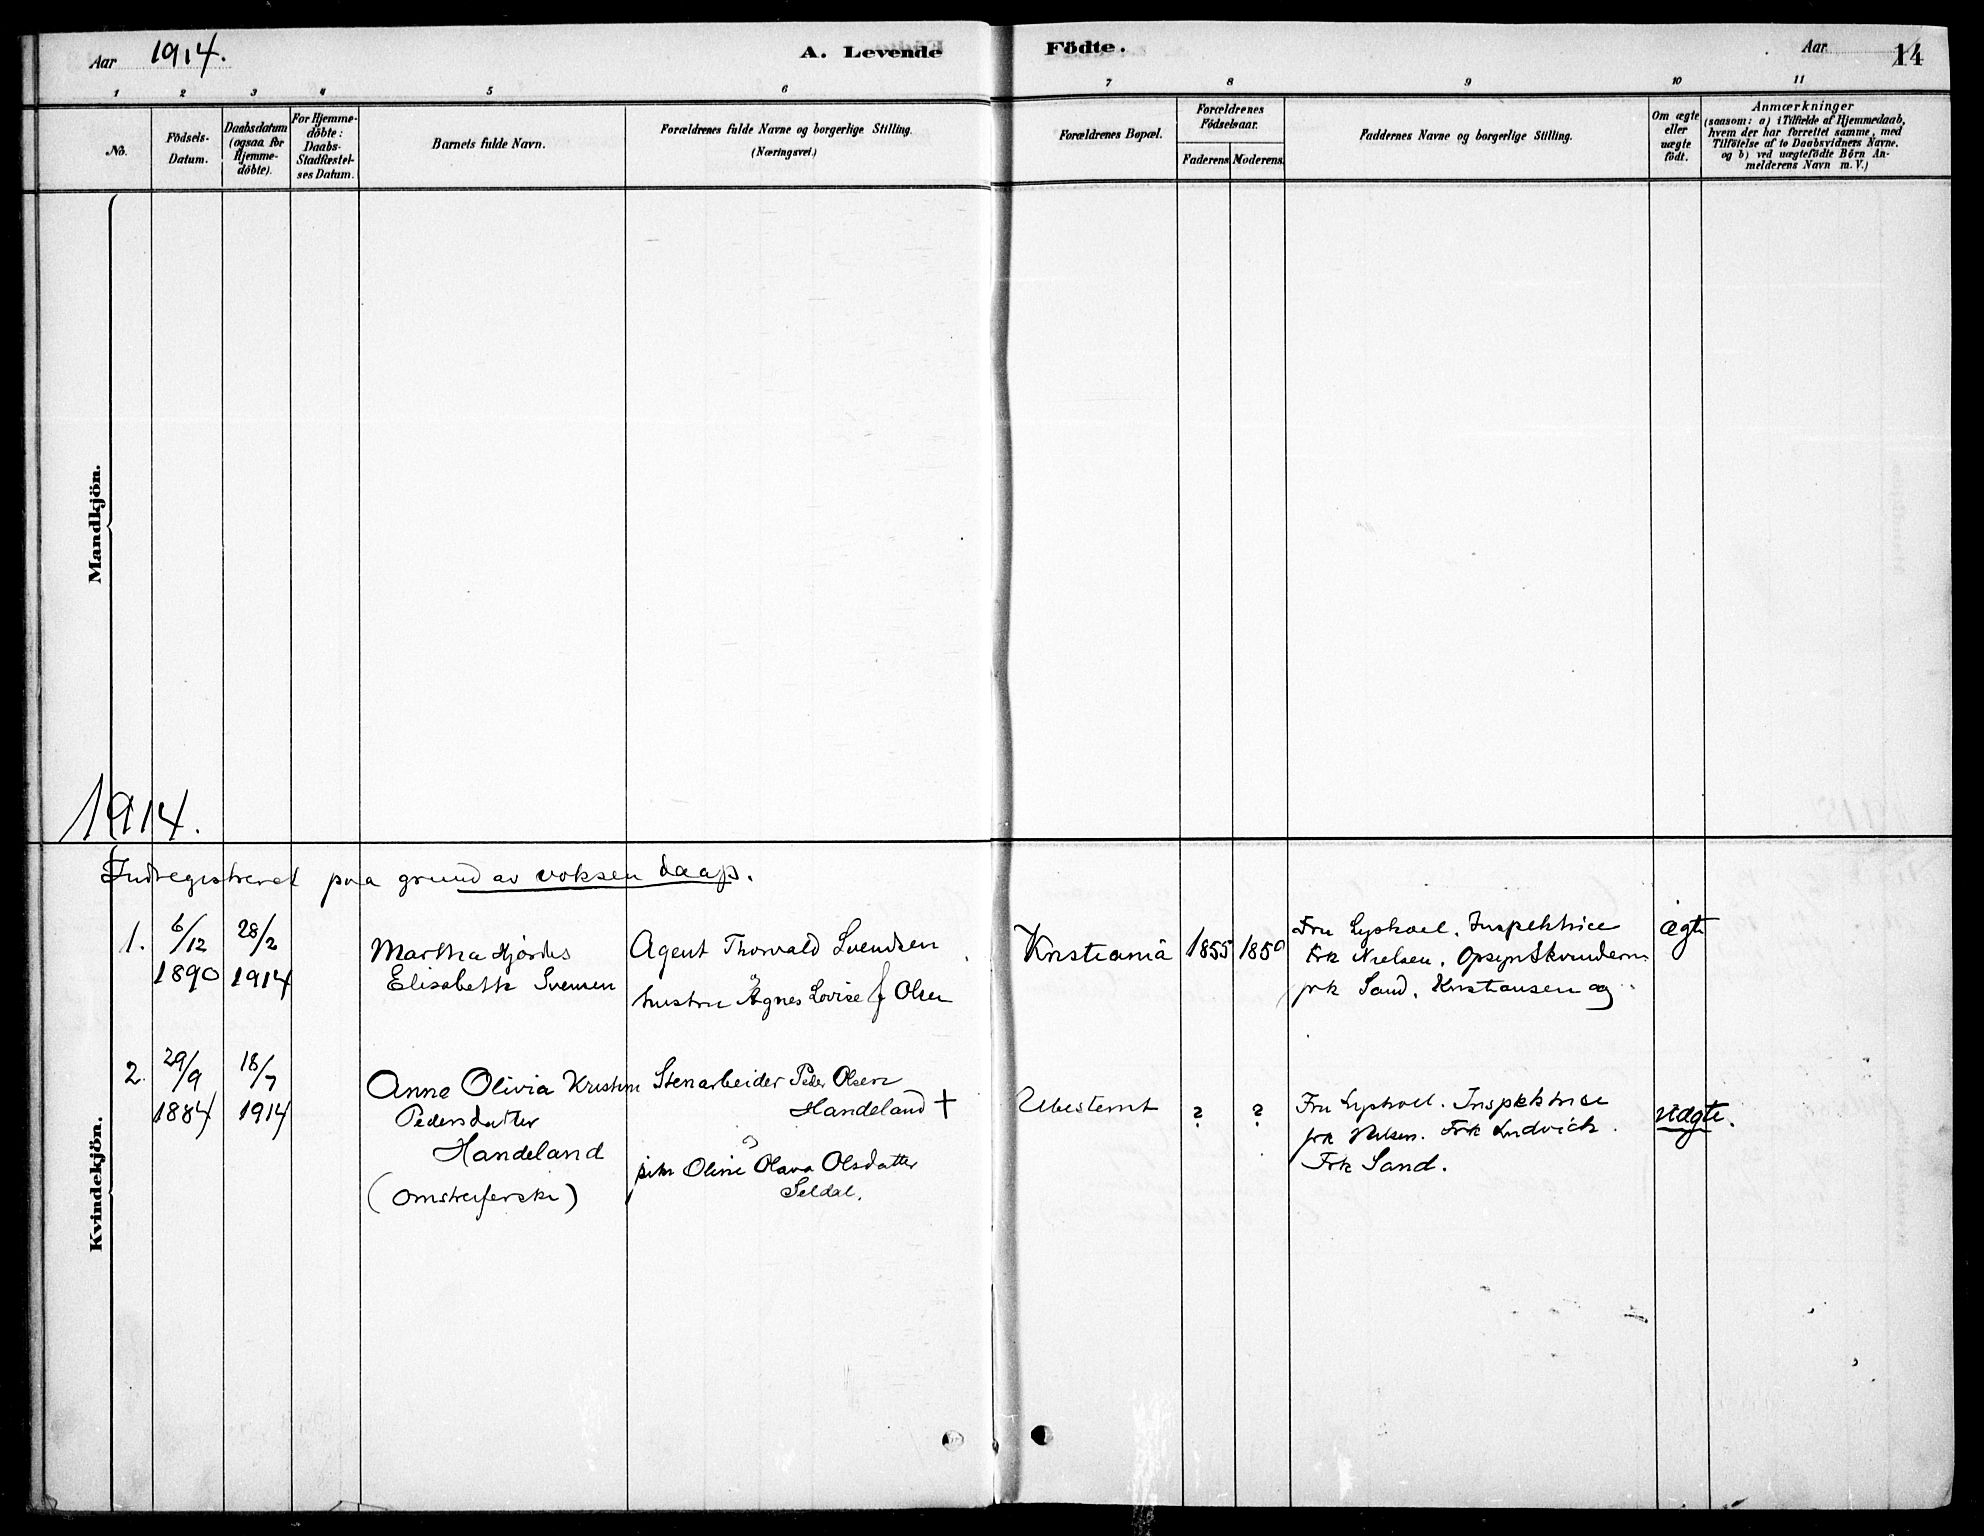 Aar 1914. A. Levende Födte. Aar 14
1 2 3 4 5 6 7 8 9 10 11
No.
Födsels-
Datum.
Daabsdatum
(ogsaa for
Hjemme-
döbte).
For Hjemme-
döbte:
Daabs-
Stadfæstel-
ses Datum.
Barnets fulde Navn.
Forældrenes fulde Navne og borgerlige Stilling.
(Næringsvei.)
Forældrenes Bopæl.
Forældrenes
Födselsaar.
Faderens. Moderens.
Faddernes Navne og borgerlige Stilling.
Om ægte
eller
uægte
födt.
Anmærkninger
(saasom: a) i Tilfælde af Hjemmedaab,
hvem der har forrettet samme, med
Tilföielse af to Daabsvidners Navne.
og b) ved uægtefödte Börn An-
melderens Navn m. V.)
Mandkjön.
1914.
Kvindekjön.
Indregistreret paa grund av voksen daap.
1.
6/12
1890
28/2
1914
Martha Hjördis
Elisabeth Svensen
Agent Thorvald Svendsen
hustru Agnes Lovise f Olsen
Kristiania
1855
1850
Fru Lyskoel. Inspektrice
Frk Nielsen. Opsynskvinderne
frk Sand. Kristiansen og
ægte
2.
29/9
1884
18/7
1914
Anne Olivia Kristine
Pedersdatter
Handeland
(omstreiferske)
Stenarbeider Peder Olsen
Handeland †
pike Oline Olava Olsdatter
Seldal.
Ubestemt
?
?
Fru Lyskoel. Inspektrise
frk Nielsen. Frk Ludvick.
Frk Sand.
uægte.